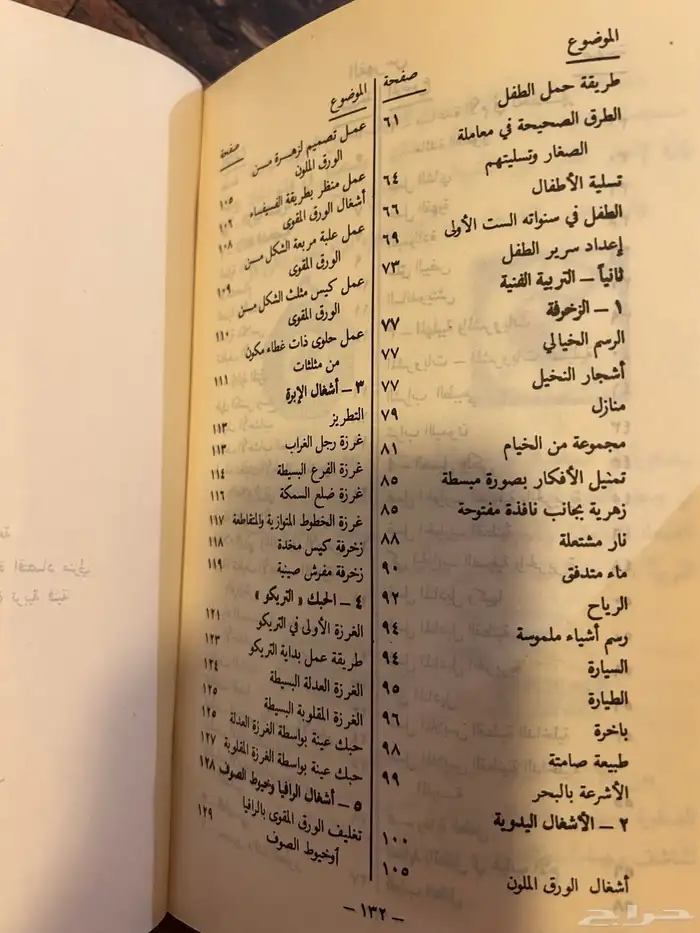 الموضوع
صفحة
طريقة حمل الطفل
٦١
الطرق الصحيحة في معاملة
الصغار وتسليتهم
٦٤
تسلية الأطفال
٦٦
الطفل في سنواته الست الأولى
٦٩
إعداد سرير الطفل
٧٣
ثانياً – التربية الفنية
١ – الزخرفة
٧٧
الرسم الخيالي
٧٧
أشجار النخيل
٧٧
منازل
٧٩
مجموعة من الخيام
٨١
تمثيل الأفكار بصورة مبسطة
٨٥
زهرية بجانب نافذة مفتوحة
٨٥
نار مشتعلة
٨٨
ماء متدفق
٩٠
الرياح
٩٢
رسم أشياء ملموسة
٩٤
السيارة
٩٤
الطيارة
٩٥
باخرة
٩٦
طبيعة صامتة
٩٨
الأشرعة بالبحر
٩٩
٢ – الأشغال اليدوية
١٠٠
أشغال الورق الملون
١٠٥
الموضوع
صفحة
عمل تصميم لزهرة مسن
الورق الملون
١٠٥
عمل منظر بطريقة الفسيفساء
١٠٦
أشغال الورق المقوى
١٠٨
عمل علبة مربعة الشكل مسن
الورق المقوى
١٠٩
عمل كيس مثلث الشكل مسن
الورق المقوى
١١٠
عمل حلوى ذات غطاء مكون
من مثلثات
١١١
٣ – أشغال الإبرة
التطريز
١١٣
غرزة رجل الغراب
١١٣
غرزة الفرع البسيطة
١١٤
غرزة ضلع السمكة
١١٦
غرزة الخطوط المتوازية والمتقاطعة
١١٧
زخرفة كيس مخدة
١١٨
زخرفة مفرش صينية
١١٩
٤ – الحبك « التريكو »
الغرزة الأولى في التريكو
١٢١
طريقة عمل بداية التريكو
١٢٣
الغرزة العدلة البسيطة
١٢٤
الغرزة المقلوبة البسيطة
١٢٥
حبك عينة بواسطة الغرزة العدلة
١٢٥
حبك عينة بواسطة الغرزة المقلوبة
١٢٧
٥ – أشغال الرافيا وخيوط الصوف
١٢٨
تغليف الورق المقوى بالرافيا
أوخيوط الصوف
١٢٩
– ١٣٢ –
حراج